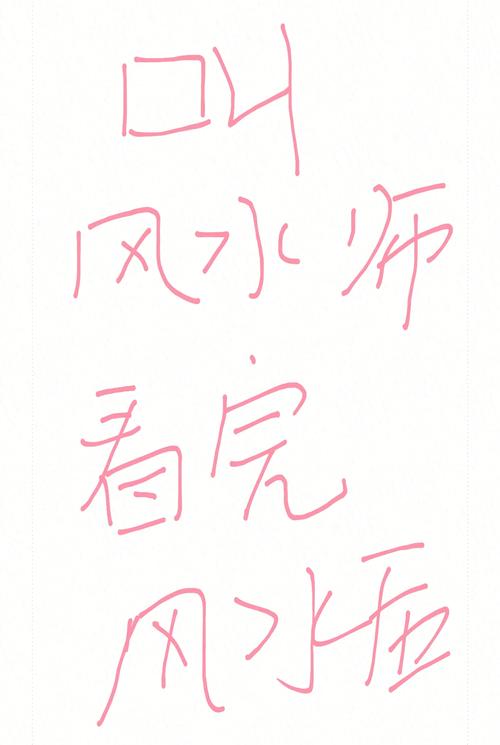 叫
风水师
看完
风水后